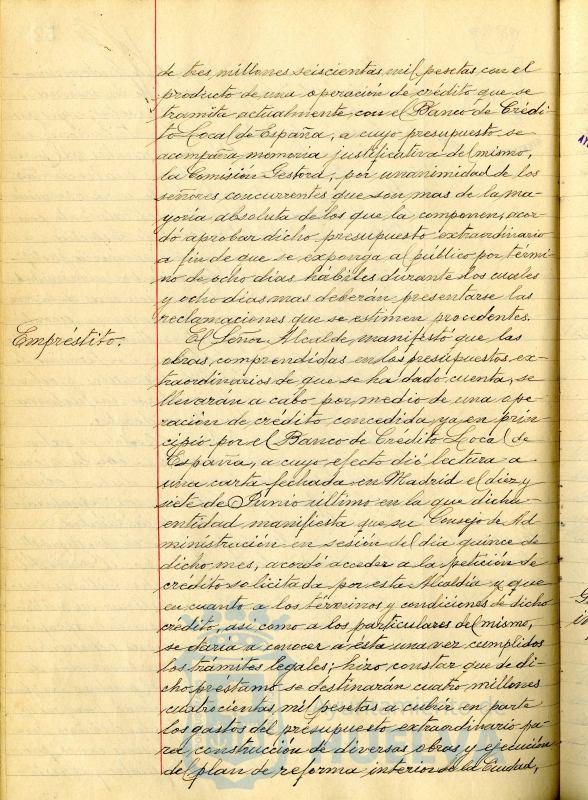 de tres millones seiscientas mil pesetas con el
producto de una operación de crédito que se
tramita actualmente, con el Banco de Crédi-
to Local de España, a cuyo presupuesto se
acompaña memoria justificativa del mismo,
la Comisión Gestora, por unanimidad de los
señores concurrentes que son mas de la ma-
yoría absoluta de los que la componen, acor-
dó aprobar dicho presupuesto extraordinario
a fin de que se exponga al público por térmi-
no de ocho días hábiles durante los cuales
y ocho días mas deberán presentarse las
reclamaciones que se estimen procedentes.
Empréstito.
El Señor Alcalde manifestó que las
obras comprendidas en los presupuestos ex-
traordinarios de que se ha dado cuenta, se
llevarán a cabo por medio de una ope-
ración de crédito concedida ya en prin-
cipio por el Banco de Crédito Local de
España, a cuyo efecto dió lectura a
una carta fechada en Madrid el diez y
siete de Junio último en la que dicha
entidad manifiesta que su Consejo de Ad
ministración en sesión del dia quince de
dicho mes, acordó acceder a la petición de
crédito solicitada por esta Alcaldía y que
en cuanto a los términos y condiciones de dicho
crédito, así como a los particulares del mismo,
se daría a conocer a ésta una vez cumplidos
los trámites legales; hizo constar que de di-
cho préstamo se destinarán cuatro millones
cuatrocientas mil pesetas a cubrir en parte
los gastos del presupuesto extraordinario pa-
ra construcción de diversas obras y ejecución
del plan de reforma interior de la Ciudad,